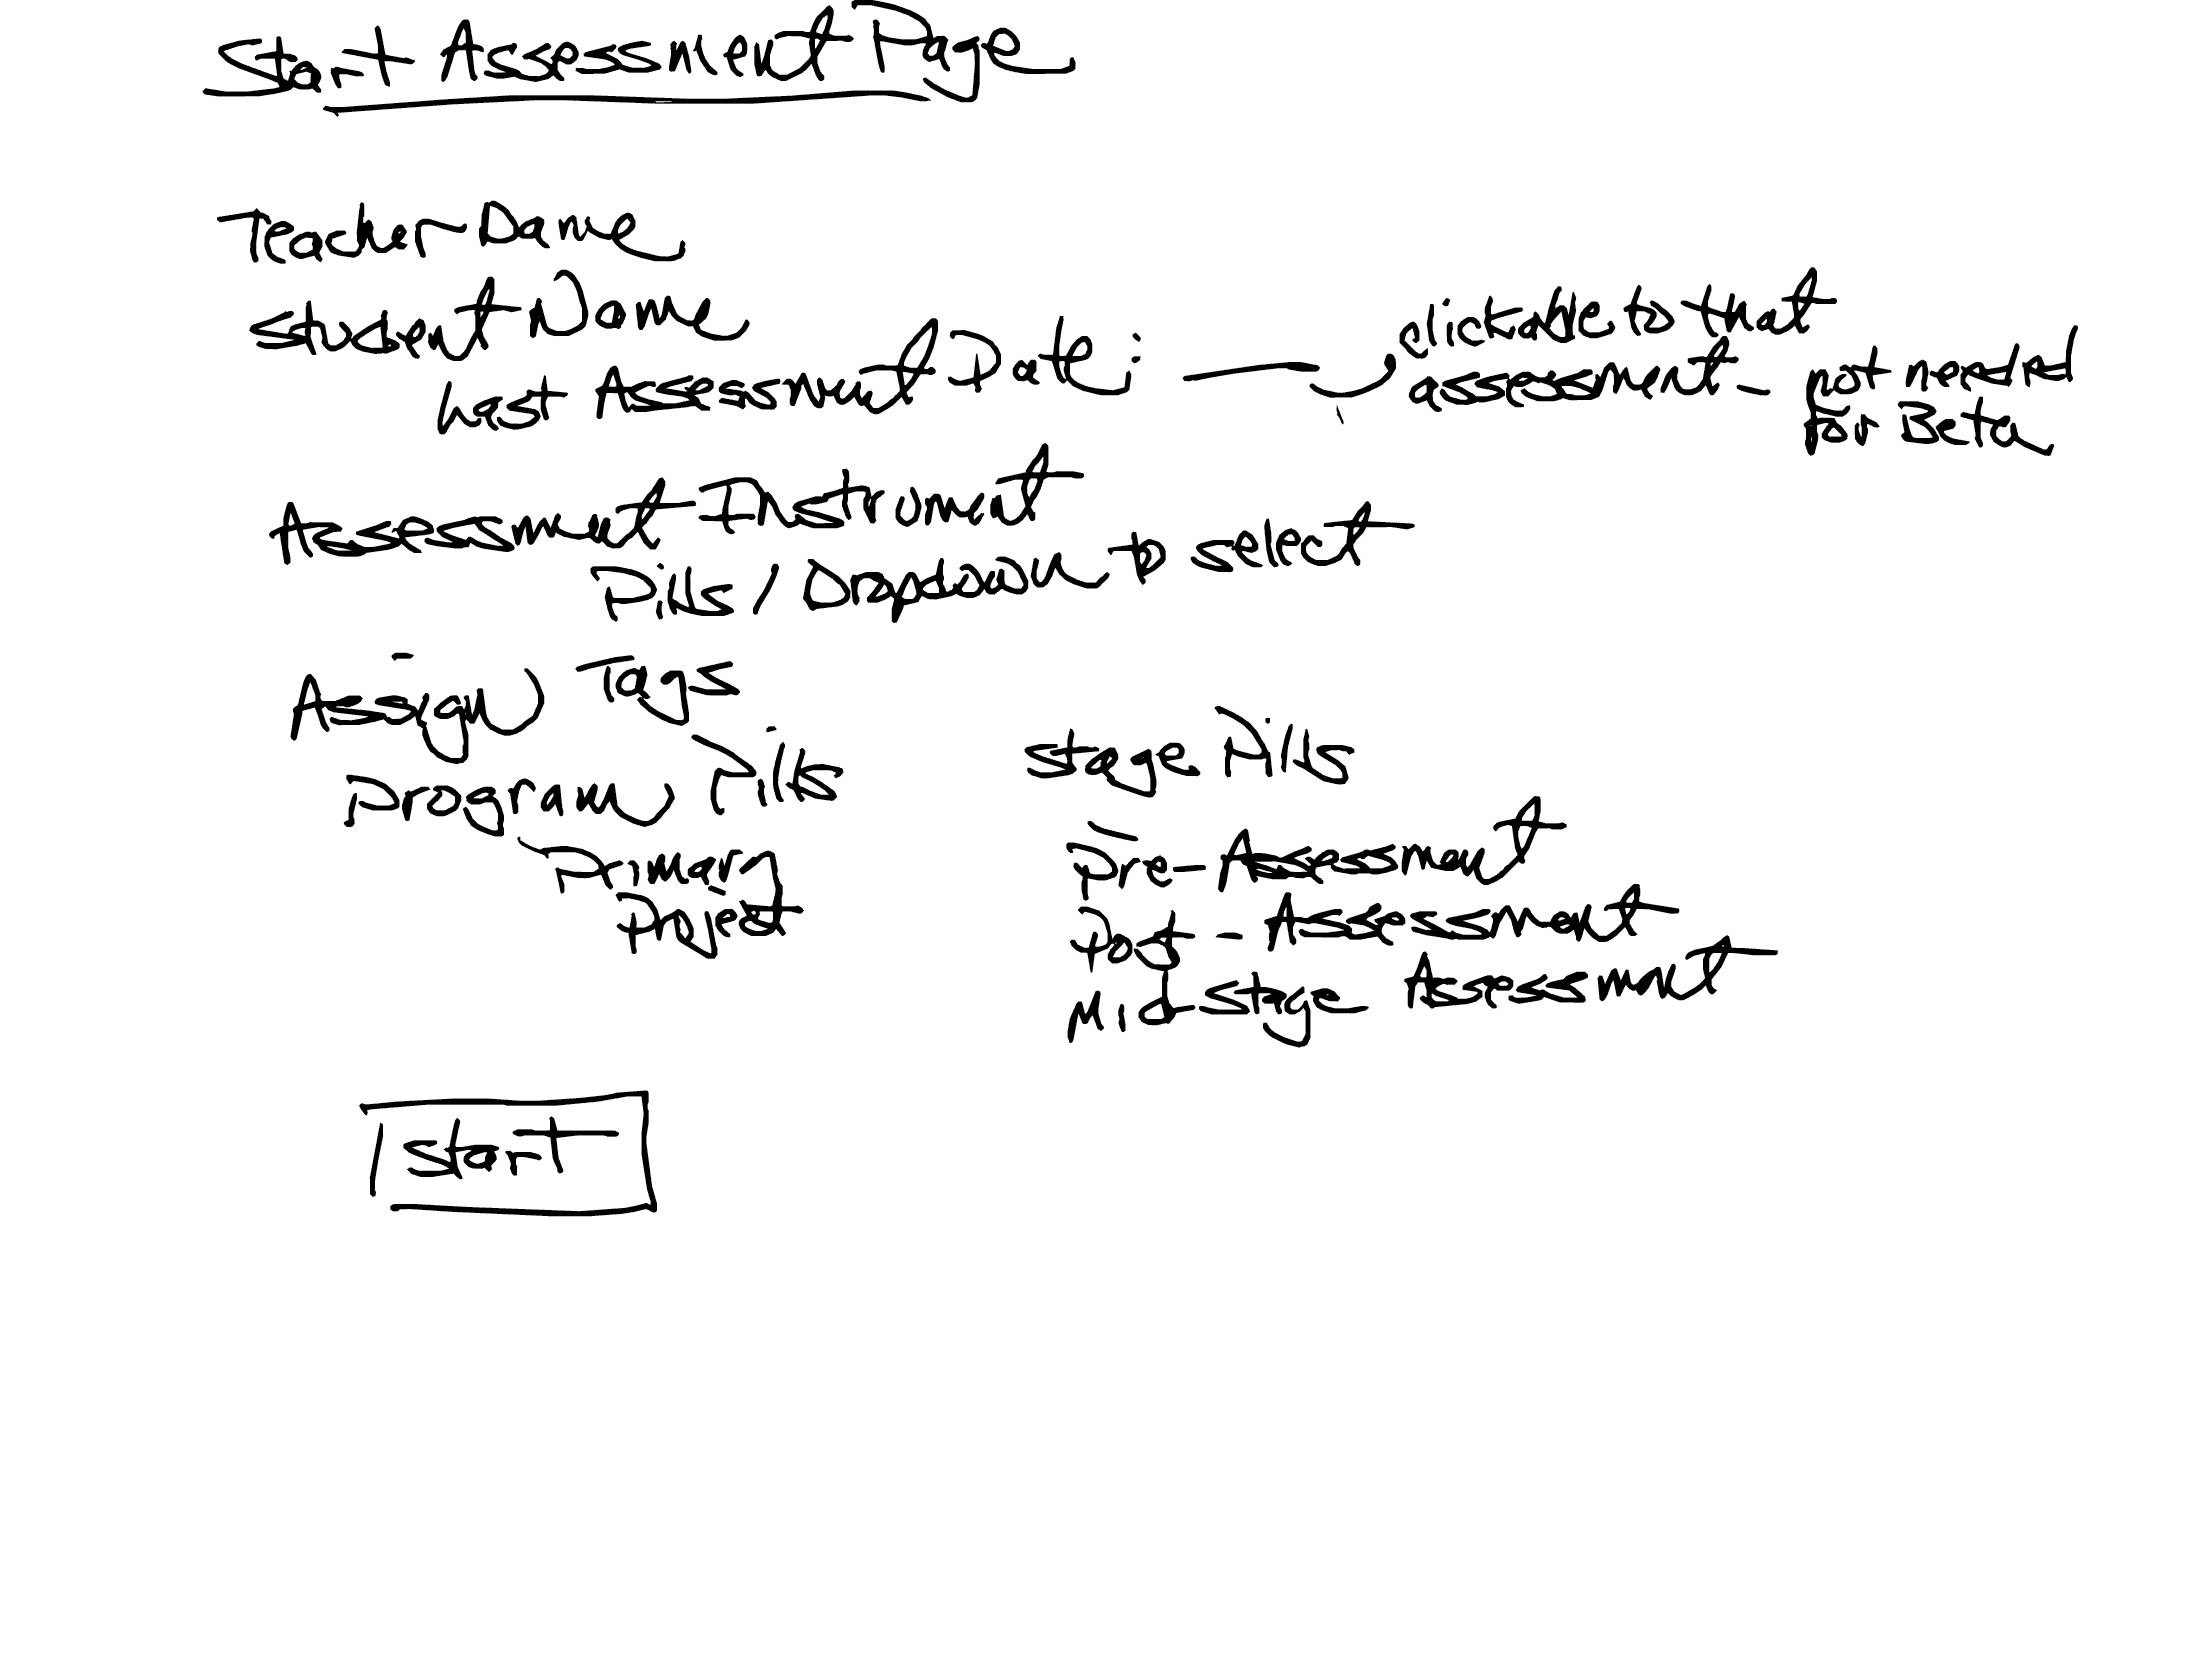 Start Assessment Page
Teacher Name
Student Name
Last Assessment Date: clickable to that
assessment - not needed
for Beta
Assessment Instrument
Pills / Dropdown to select
Assign Tags
Program Pills
Primary
Project
Stage Pills
Pre-Assessment
Post - Assessment
Mid-Stage Assessment
Start